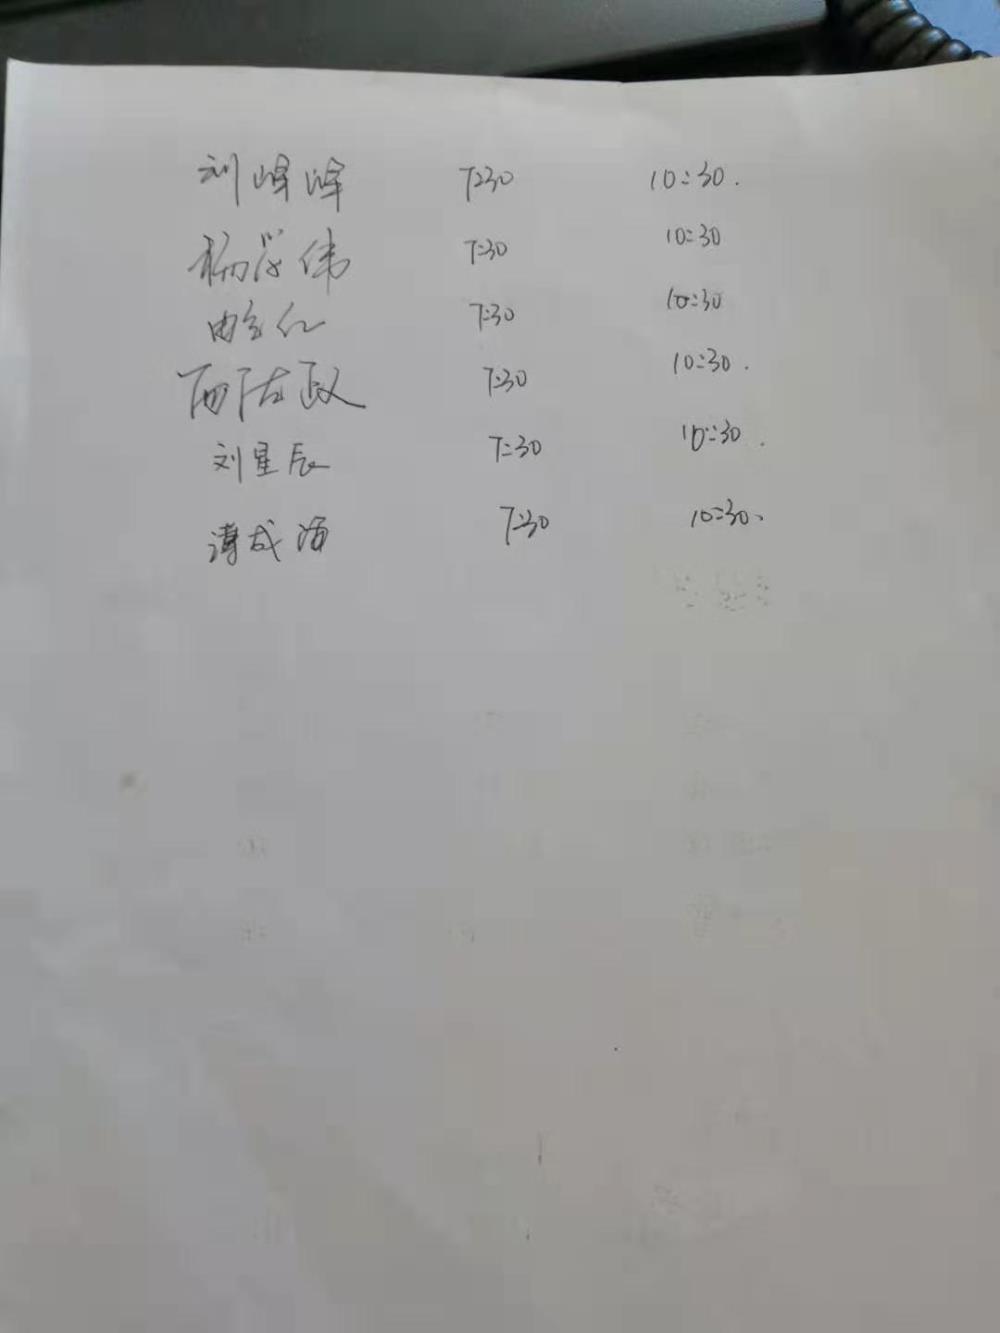 刘峰峰 7:30 10:30.
伟 7:30 10:30
7:30 10:30
政 7:30 10:30.
刘星辰 7:30 10:30.
成海 7:30 10:30.